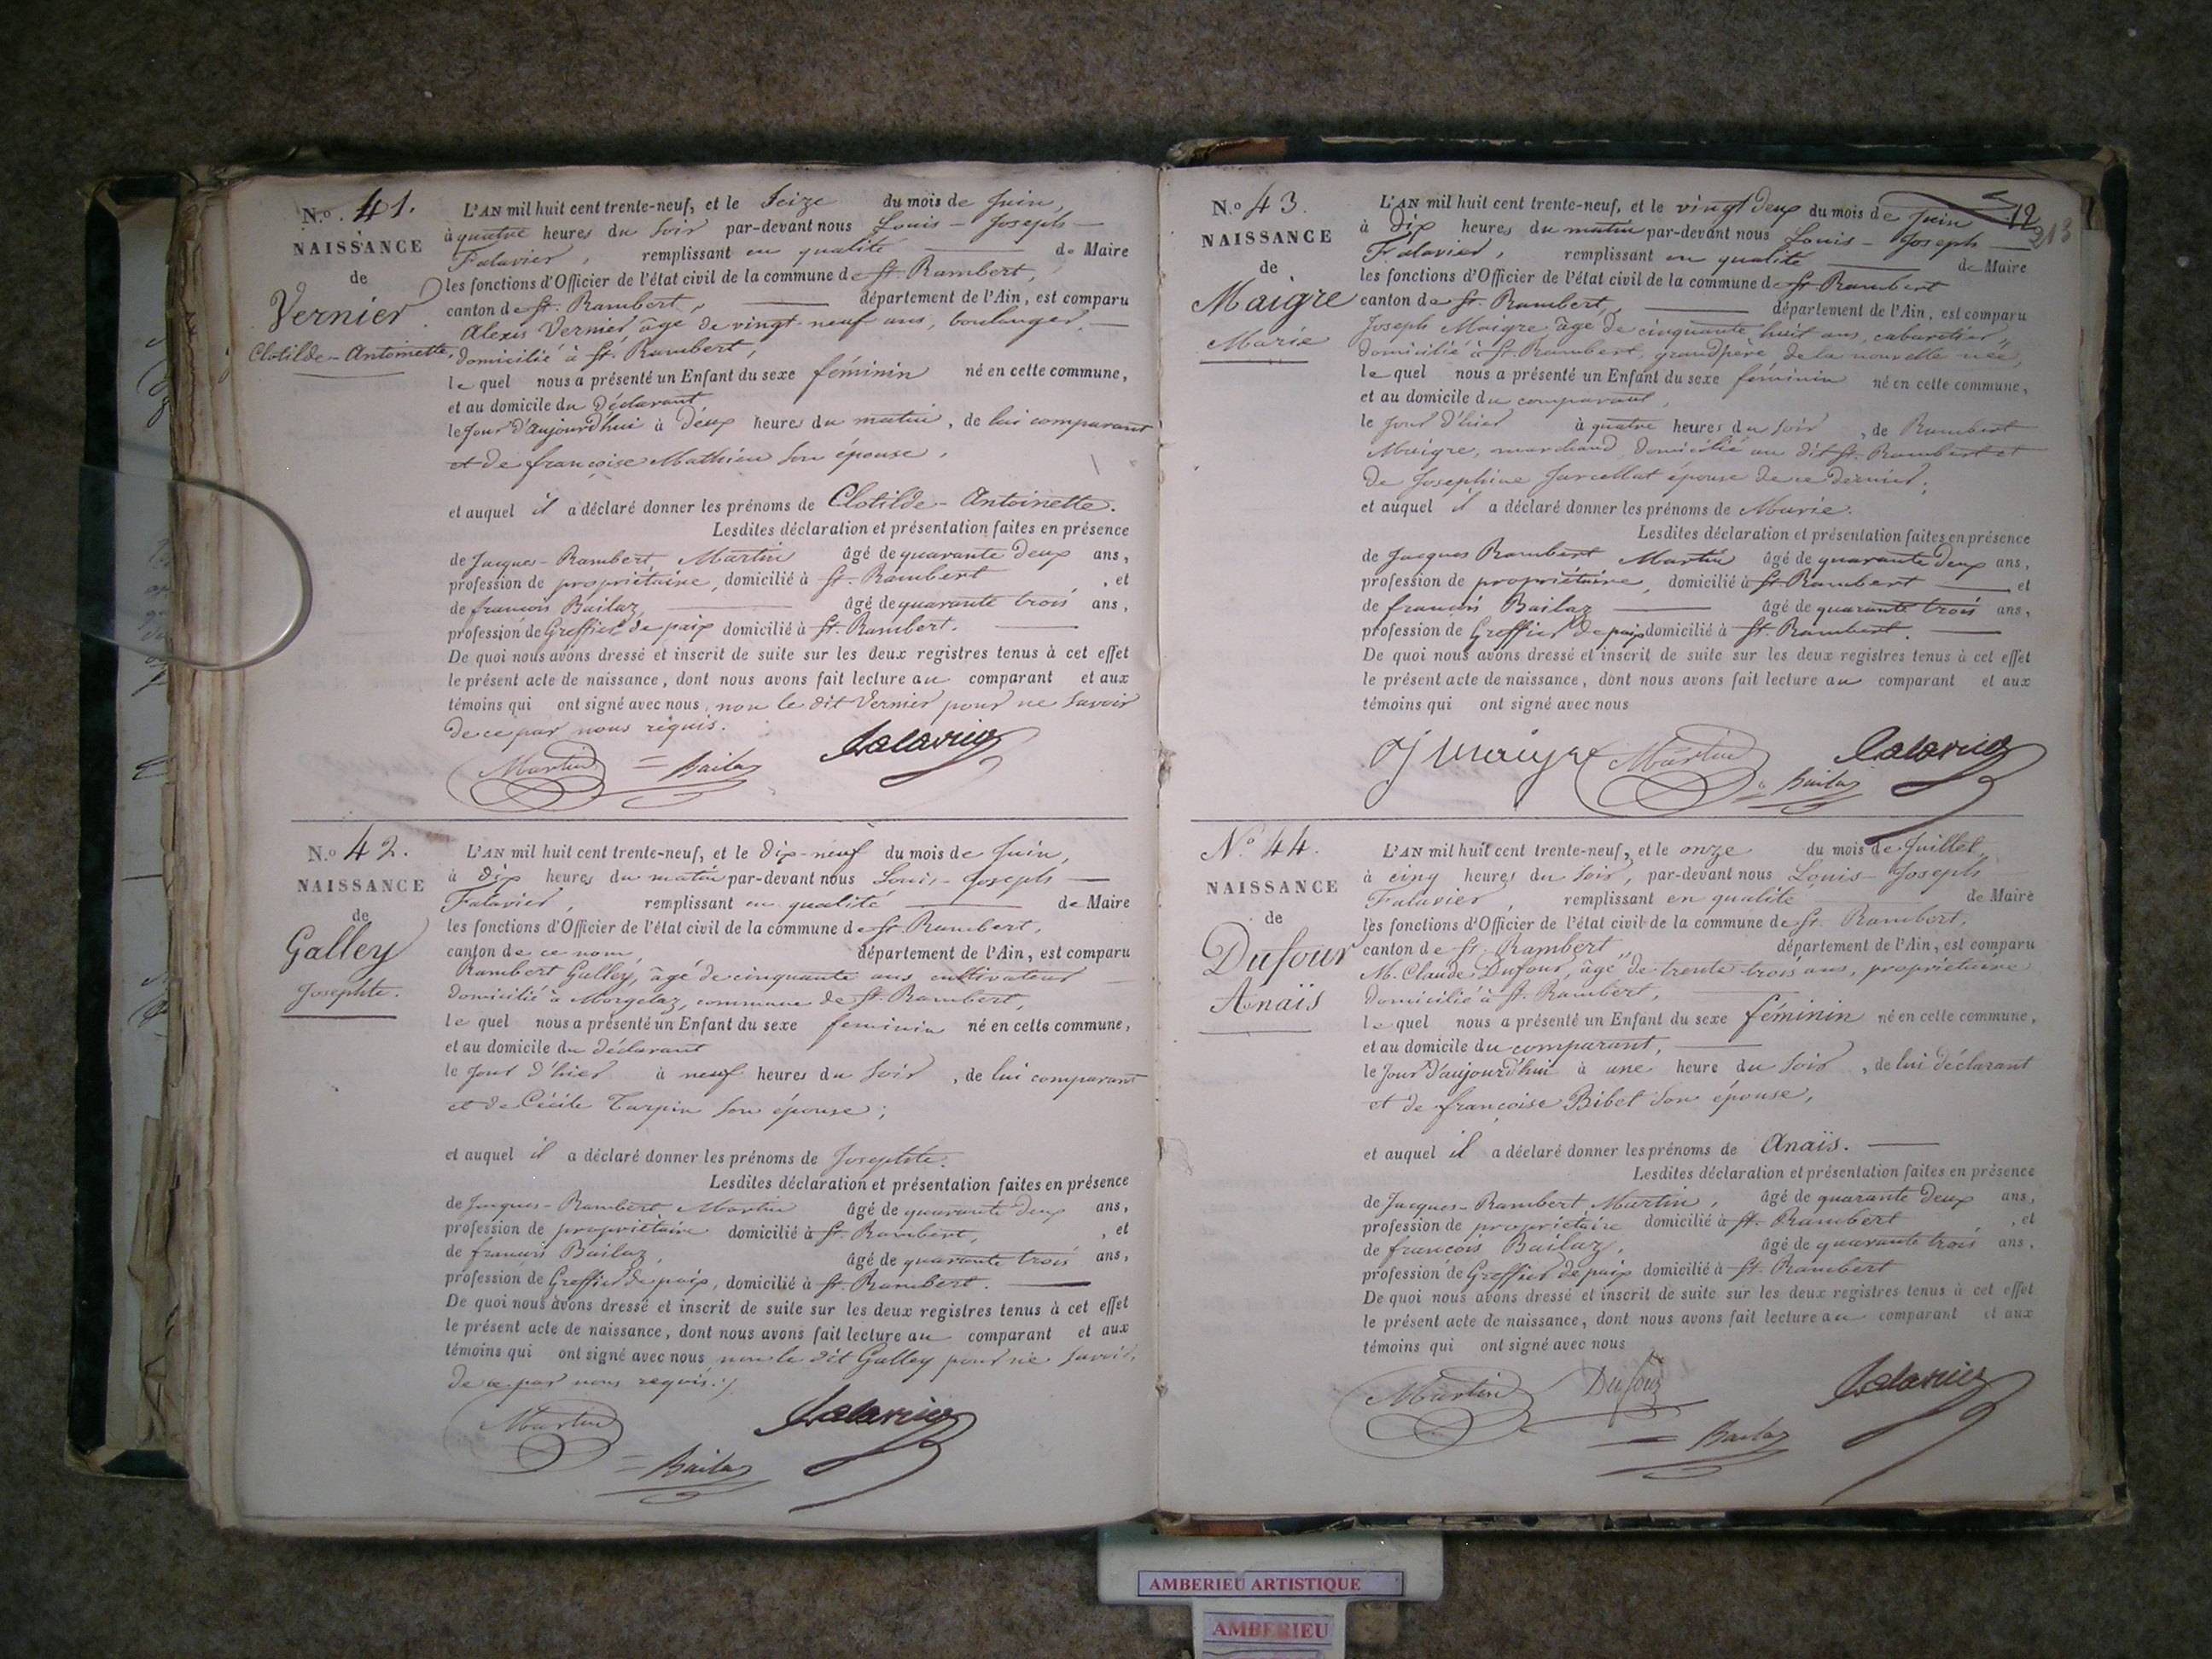 N.º 41.
NAISSANCE
de
Vernier
Clotilde-Antoinette,
L'AN mil huit cent trente-neuf, et le Seize du mois de Juin,
à quatre heures du Soir par-devant nous Louis-Joseph
Falavier, remplissant en qualité de Maire
les fonctions d'Officier de l'état civil de la commune de St. Rambert,
canton de St. Rambert, département de l'Ain, est comparu
Alexis Vernier âgé de vingt-neuf ans, boulanger,
domicilié à St. Rambert,
lequel nous a présenté un Enfant du sexe féminin né en cette commune,
et au domicile du Déclarant
le Jour d'aujourd'hui à deux heures du matin, de lui comparant
et de françoise Mathieu son épouse,
et auquel il a déclaré donner les prénoms de Clotilde-Antoinette.
Lesdites déclaration et présentation faites en présence
de Jacques-Rambert Martin âgé de quarante deux ans,
profession de propriétaire, domicilié à St. Rambert, et
de françois Bailaz, âgé de quarante trois ans,
profession de Greffier de paix domicilié à St. Rambert.
De quoi nous avons dressé et inscrit de suite sur les deux registres tenus à cet effet
le présent acte de naissance, dont nous avons fait lecture au comparant et aux
témoins qui ont signé avec nous, non le dit Vernier pour ne savoir
de ce par nous requis.
Martin Bailaz Falavier
N.º 42.
NAISSANCE
de
Galley
Josephte.
L'AN mil huit cent trente-neuf, et le dix-neuf du mois de Juin,
à dix heures du matin par-devant nous Louis-Joseph
Falavier, remplissant en qualité de Maire
les fonctions d'Officier de l'état civil de la commune de St. Rambert,
canton de ce nom, département de l'Ain, est comparu
Rambert Galley, âgé de cinquante ans cultivateur
domicilié à Morgelaz, commune de St. Rambert,
lequel nous a présenté un Enfant du sexe féminin né en cette commune,
et au domicile du déclarant
le Jour d'hier à neuf heures du Soir, de lui comparant
et de Cécile Turpin son épouse;
et auquel il a déclaré donner les prénoms de Josephte.
Lesdites déclaration et présentation faites en présence
de Jacques-Rambert Martin âgé de quarante deux ans,
profession de propriétaire domicilié à St. Rambert, et
de françois Bailaz, âgé de quarante trois ans,
profession de Greffier de paix, domicilié à St. Rambert.
De quoi nous avons dressé et inscrit de suite sur les deux registres tenus à cet effet
le présent acte de naissance, dont nous avons fait lecture au comparant et aux
témoins qui ont signé avec nous non le dit Galley pour ne savoir,
de ce par nous requis.
Martin Bailaz Falavier
12
213
N.º 43.
NAISSANCE
de
Maigre
Marie
L'AN mil huit cent trente-neuf, et le vingt deux du mois de Juin
à Dix heures du matin par-devant nous Louis-Joseph
Falavier, remplissant en qualité de Maire
les fonctions d'Officier de l'état civil de la commune de St. Rambert
canton de St. Rambert, département de l'Ain, est comparu
Joseph Maigre âgé de cinquante huit ans, cabaretier,
domicilié à St. Rambert, grandpère de la nouvelle née,
lequel nous a présenté un Enfant du sexe féminin né en cette commune,
et au domicile du comparant,
le Jour d'hier à quatre heures du Soir, de Rambert
Maigre, marchand domicilié au dit St. Rambert et
de Josephine Jarcellat épouse de ce dernier;
et auquel il a déclaré donner les prénoms de Marie.
Lesdites déclaration et présentation faites en présence
de Jacques Rambert Martin âgé de quarante deux ans,
profession de propriétaire, domicilié à St. Rambert et
de françois Bailaz âgé de quarante trois ans,
profession de Greffier de paix domicilié à St. Rambert.
De quoi nous avons dressé et inscrit de suite sur les deux registres tenus à cet effet
le présent acte de naissance, dont nous avons fait lecture au comparant et aux
témoins qui ont signé avec nous
J Maigre Martin Bailaz Falavier
N.º 44.
NAISSANCE
de
Dufour
Anaïs
L'AN mil huit cent trente-neuf, et le onze du mois de Juillet,
à cinq heures du Soir, par-devant nous Louis-Joseph
Falavier, remplissant en qualité de Maire
les fonctions d'Officier de l'état civil de la commune de St. Rambert,
canton de St. Rambert, département de l'Ain, est comparu
M. Claude Dufour, âgé de trente-trois ans, propriétaire
domicilié à St. Rambert,
lequel nous a présenté un Enfant du sexe féminin né en cette commune,
et au domicile du comparant,
le Jour d'aujourd'hui à une heure du Soir, de lui déclarant
et de françoise Bibet son épouse,
et auquel il a déclaré donner les prénoms de Anaïs.
Lesdites déclaration et présentation faites en présence
de Jacques-Rambert Martin, âgé de quarante deux ans,
profession de propriétaire domicilié à St. Rambert, et
de françois Bailaz, âgé de quarante trois ans,
profession de Greffier de paix domicilié à St. Rambert
De quoi nous avons dressé et inscrit de suite sur les deux registres tenus à cet effet
le présent acte de naissance, dont nous avons fait lecture au comparant et aux
témoins qui ont signé avec nous
Martin Dufour Bailaz Falavier
AMBERIEU ARTISTIQUE
AMBERIEU